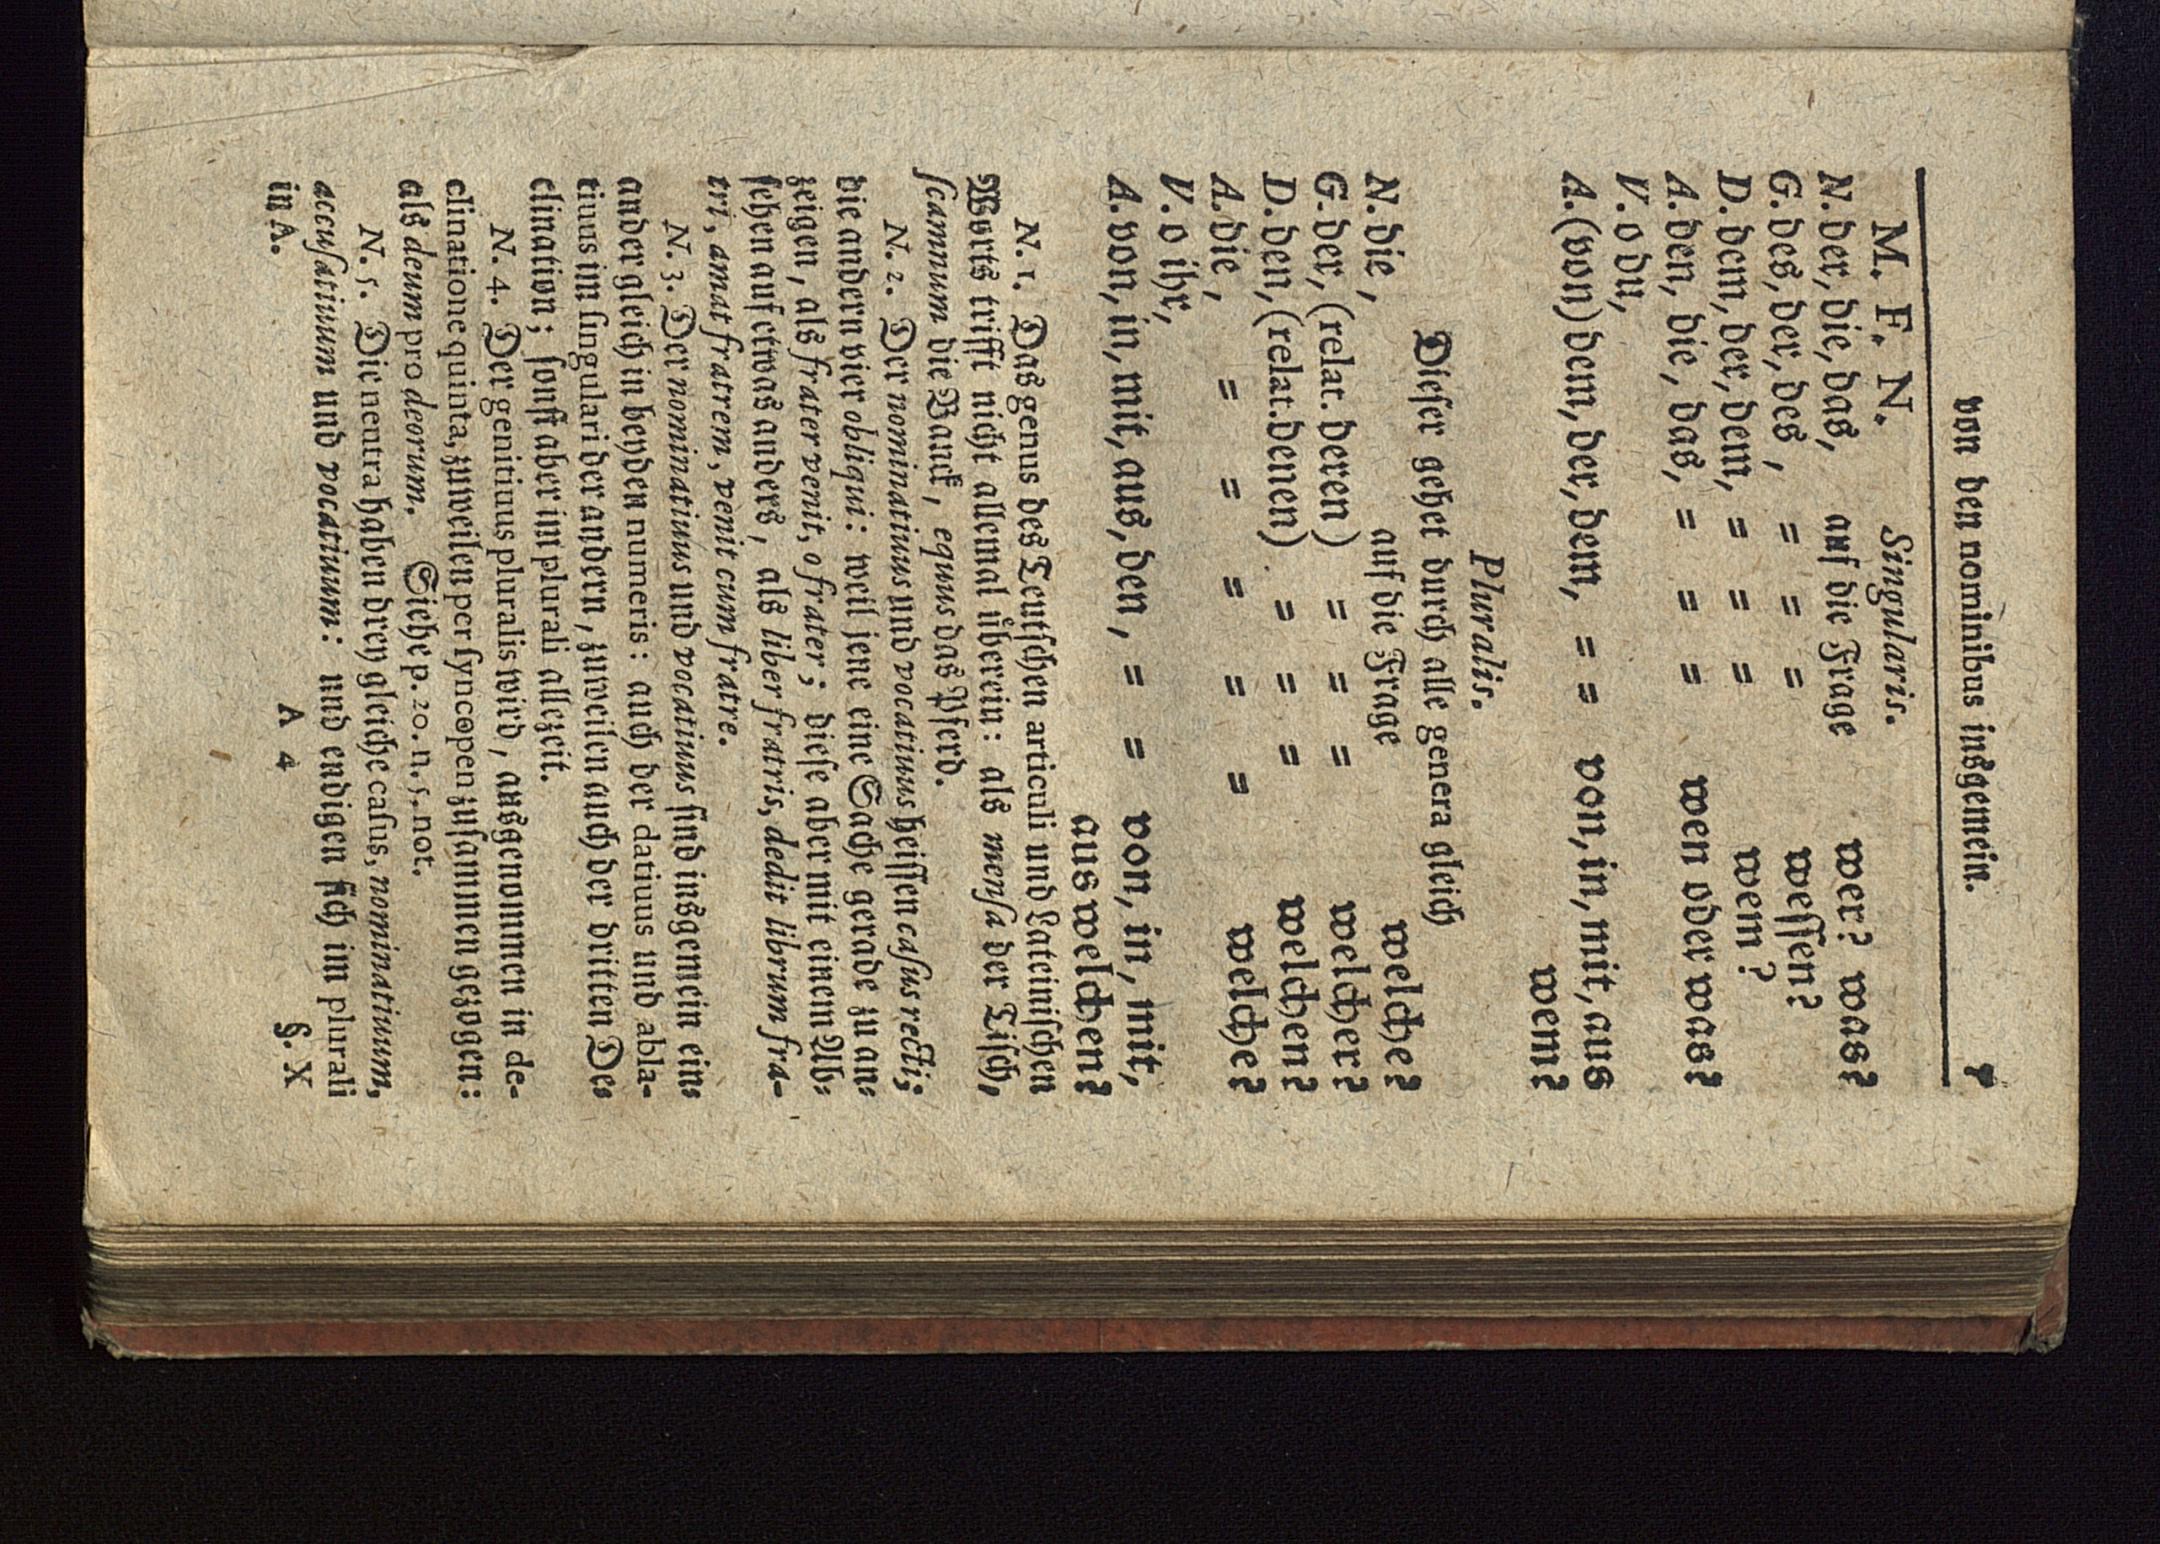 von den nominibus insgemein. 7
Singularis.
M. F. N.
N. der, die, das, auf die Frage wer? was?
G. des, der, des, = = = wessen?
D. dem, der, dem, = = = wem?
A. den, die, das, = = = wen oder was?
V. o du,
A. (von) dem, der, dem, = = von, in, mit, aus
wem?
Pluralis.
Dieser gehet durch alle genera gleich
N. die, auf die Frage welche?
G. der, (relat. deren) = = = welcher?
D. den, (relat. denen) = = = welchen?
A. die, = = = = = welche?
V. o ihr,
A. von, in, mit, aus, den, = = von, in, mit,
aus welchen?
N. 1. Das genus des Teutschen articuli und Lateinischen
Worts trifft nicht allemal uͤberein: als mensa der Tisch,
scamnum die Banck, equus das Pferd.
N. 2. Der nominatiuus und vocatiuus heissen casus recti;
die andern vier obliqui: weil jene eine Sache gerade zu an=
zeigen, als frater venit, o frater; diese aber mit einem Ab=
sehen auf etwas anders, als liber fratris, dedit librum fra-
tri, amat fratrem, venit cum fratre.
N. 3. Der nominatiuus und vocatiuus sind insgemein ein=
ander gleich in beyden numeris: auch der datiuus und abla-
tiuus im singulari der andern, zuweilen auch der dritten De=
clination; sonst aber im plurali allezeit.
N. 4. Der genitiuus pluralis wird, ausgenommen in de-
clinatione quinta, zuweilen per syncopen zusammen gezogen:
als deum pro deorum. Siehe p. 20. n. 5. not.
N. 5. Die neutra haben drey gleiche casus, nominatiuum,
accusatiuum und vocatiuum: und endigen sich im plurali
in A.
A 4 §. X